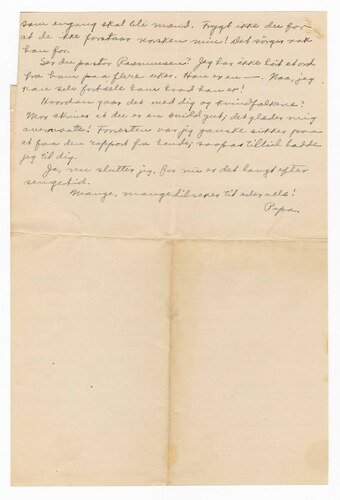 som engang skal bli mænd. Frygt ikke deu for-
at de ikke forstaar norsken min! Det sörger nok
han for.
Ser du pastor Rasmussen? Jeg har ikke hört et ord
fra ham paa flere uker. Han er en —. Naa, jeg
kan selv fortælle ham hvad han er!
Hvordan gaar det med dig og kvindfolkene?
Mor skriver at du er en snild gut; det glæder mig
Forresten var jeg ganske sikker paa
at faa den rapport fra hende; saapas tillid hadde
jeg til dig.
Ja, nu slutter jeg, for nu er det langt efter
sengetid.
Mange, mange hilsener til eder alle!
Papa